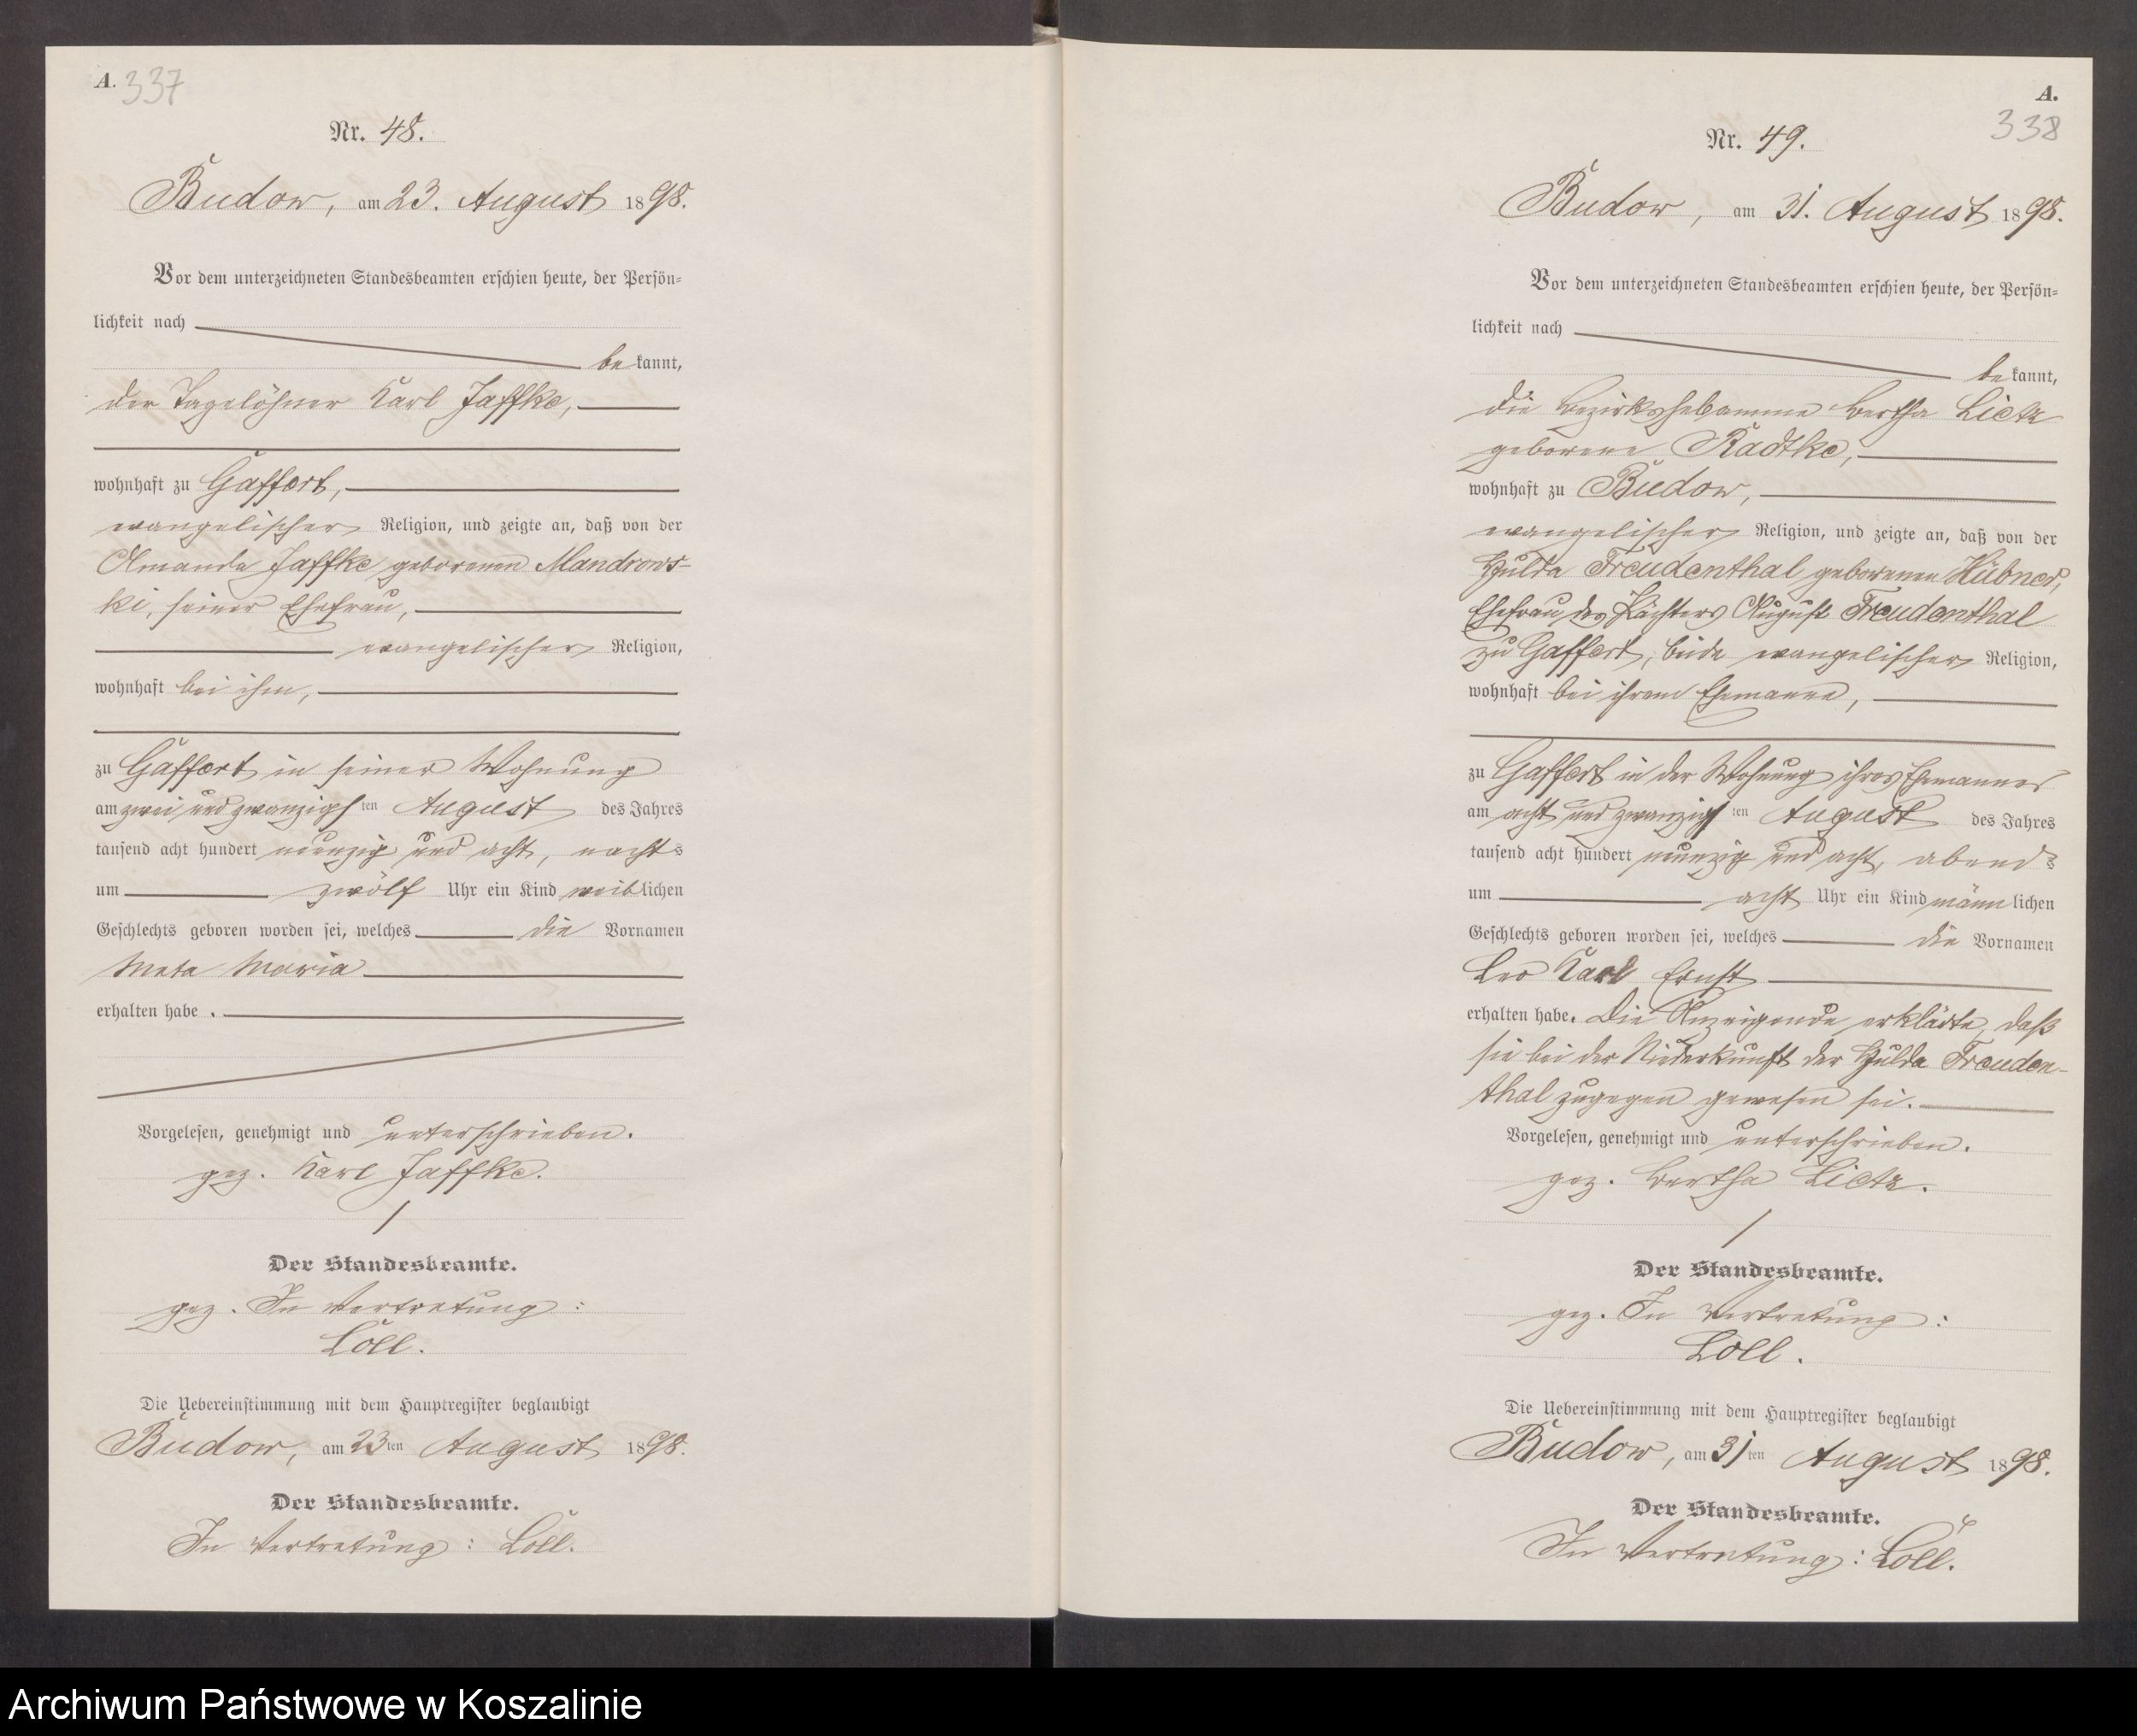 A. 337
Nr. 48.
Budow, am 23. August 1898.
Vor dem unterzeichneten Standesbeamten erschien heute, der Persön-
lichkeit nach
bekannt,
der Tagelöhner Karl Jaffke,
wohnhaft zu Gaffert,
evangelischer Religion, und zeigte an, daß von der
Amanda Jaffke geborenen Mandrows-
ki, seiner Ehefrau,
evangelischer Religion,
wohnhaft bei ihm,
zu Gaffert in seiner Wohnung
am zwei und zwanzigsten August des Jahres
tausend acht hundert neunzig und acht, nachts
um zwölf Uhr ein Kind weiblichen
Geschlechts geboren worden sei, welches die Vornamen
Meta Maria
erhalten habe.
Vorgelesen, genehmigt und unterschrieben.
gez. Karl Jaffke.
Der Standesbeamte.
gez. In Vertretung:
Löll.
Die Uebereinstimmung mit dem Hauptregister beglaubigt
Budow, am 23ten August 1898.
Der Standesbeamte.
In Vertretung: Löll.
A.
338
Nr. 49.
Budow, am 31. August 1898.
Vor dem unterzeichneten Standesbeamten erschien heute, der Persön-
lichkeit nach
bekannt,
die Bezirkshebamme Bertha Lietz
geborene Radtke,
wohnhaft zu Budow,
evangelischer Religion, und zeigte an, daß von der
Hulda Freudenthal geborenen Hübner,
Ehefrau des Pächters August Freudenthal
zu Gaffert, beide evangelischer Religion,
wohnhaft bei ihrem Ehemanne,
zu Gaffert in der Wohnung ihres Ehemannes
am acht und zwanzigsten August des Jahres
tausend acht hundert neunzig und acht, abends
um acht Uhr ein Kind männlichen
Geschlechts geboren worden sei, welches die Vornamen
Leo Karl Ernst
erhalten habe. Die Anzeigende erklärte, daß
sie bei der Niederkunft der Hulda Freuden-
thal zugegen gewesen sei.
Vorgelesen, genehmigt und unterschrieben.
gez. Bertha Lietz.
Der Standesbeamte.
gez. In Vertretung:
Löll.
Die Uebereinstimmung mit dem Hauptregister beglaubigt
Budow, am 31ten August 1898.
Der Standesbeamte.
In Vertretung: Löll.
Archiwum Państwowe w Koszalinie